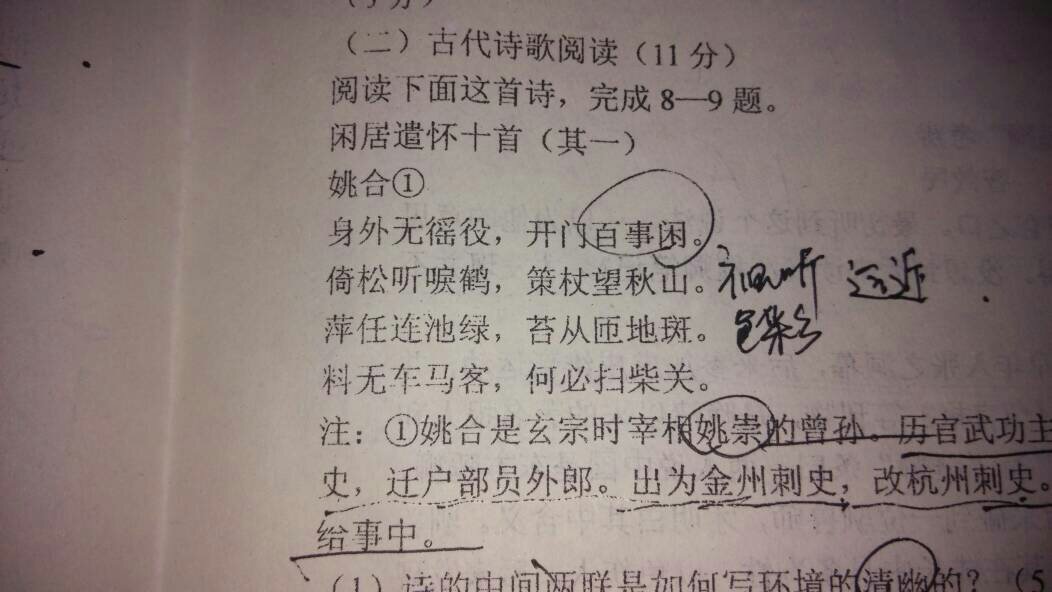 （二）古代诗歌阅读（11分）
阅读下面这首诗，完成8—9题。
闲居遣怀十首（其一）
姚合①
身外无徭役，开门百事闲。
倚松听唳鹤，策杖望秋山。视听 远近
萍任连池绿，苔从匝地斑。色彩
料无车马客，何必扫柴关。
注：①姚合是玄宗时宰相姚崇的曾孙。历官武功主
史，迁户部员外郎。出为金州刺史，改杭州刺史。
给事中。
（1）诗的中间两联是如何写环境的清幽的？（5